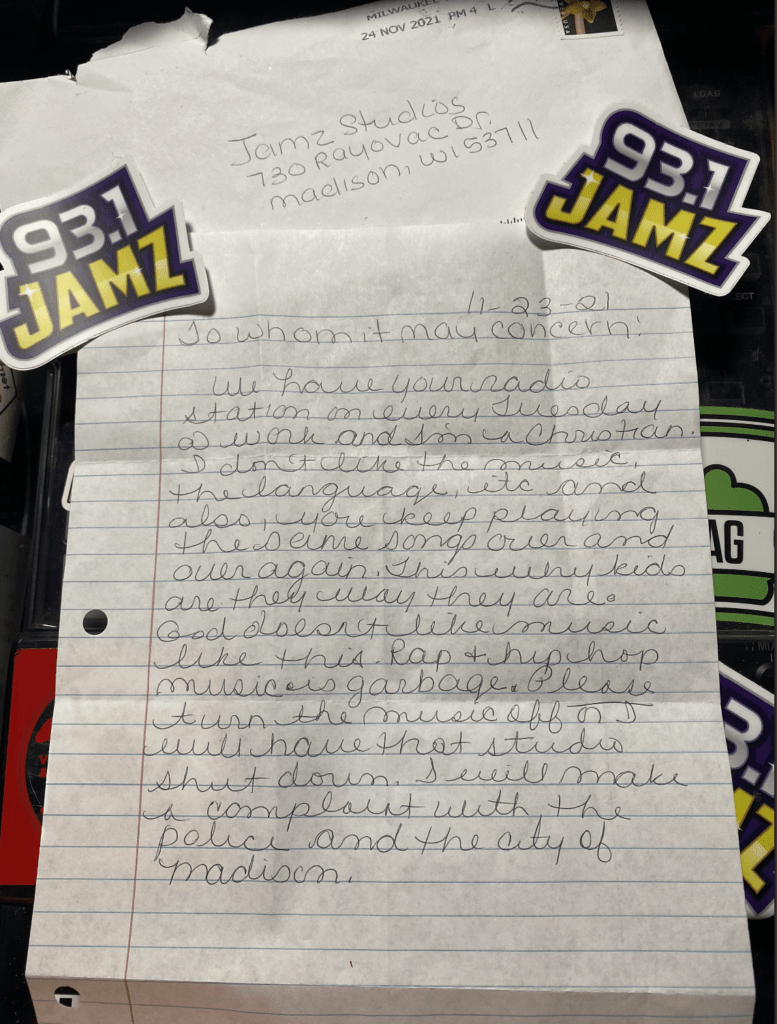 MILWAUKEE
24 NOV 2021 PM 4 L
Jamz Studios
730 Rayovac Dr.
madison, WI 53711
93.1
JAMZ
93.1
JAMZ
11-23-21
To whom it may concern:
We have your radio
station on every Tuesday
@ work and I'm a Christian.
I don't like the music,
the language, etc and
also, you keep playing
the same songs over and
over again. This why kids
are they way they are.
God doesn't like music
like this. Rap + hip hop
music is garbage. Please
turn the music off or I
will have that studio
shut down. I will make
a complaint with the
police and the city of
madison.
AG